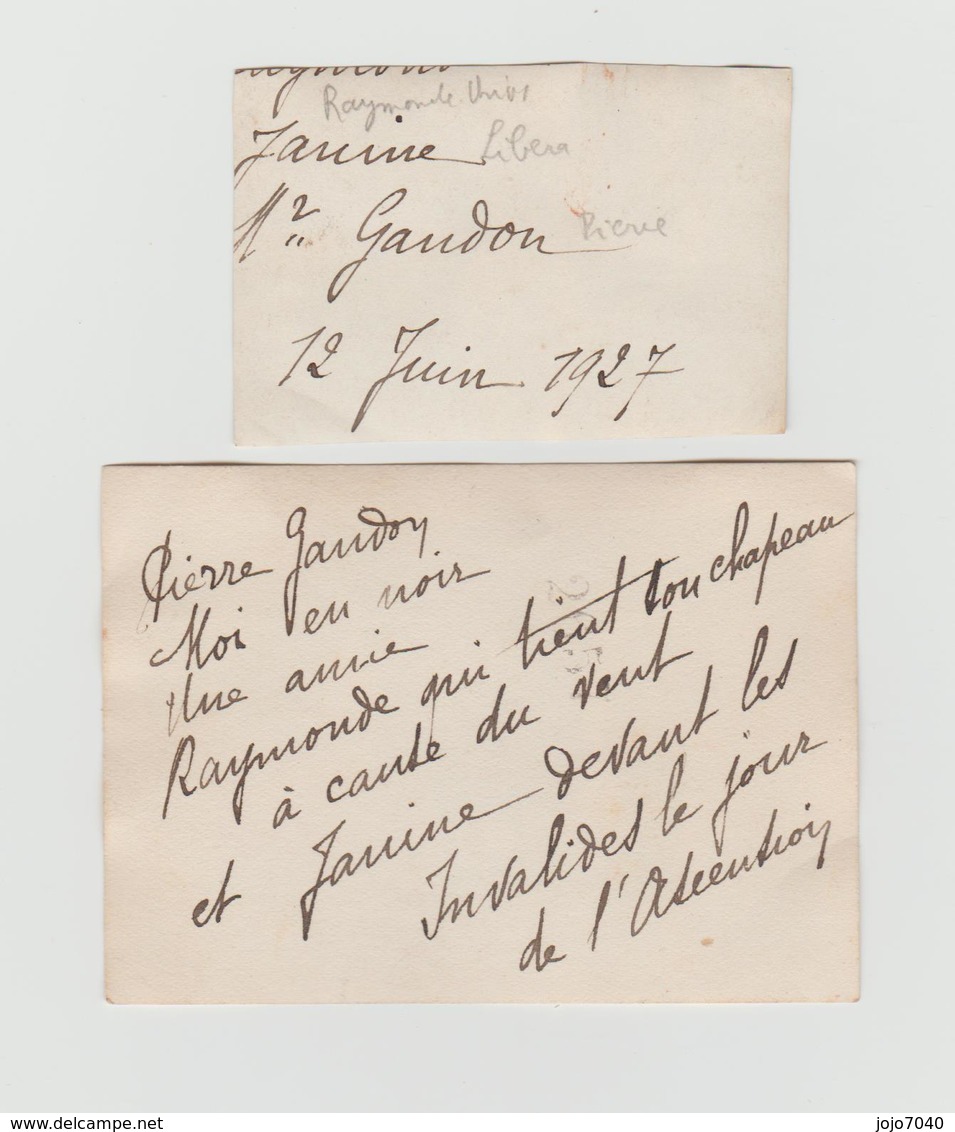 Raymonde
Janine Libera
Mr Gandon Pierre
12 Juin 1927
Pierre Gandon
Moi en noir
Une amie
Raymonde qui tient son chapeau
à cause du vent
et Janine devant les
Invalides le jour
de l'Ascention
jojo7040